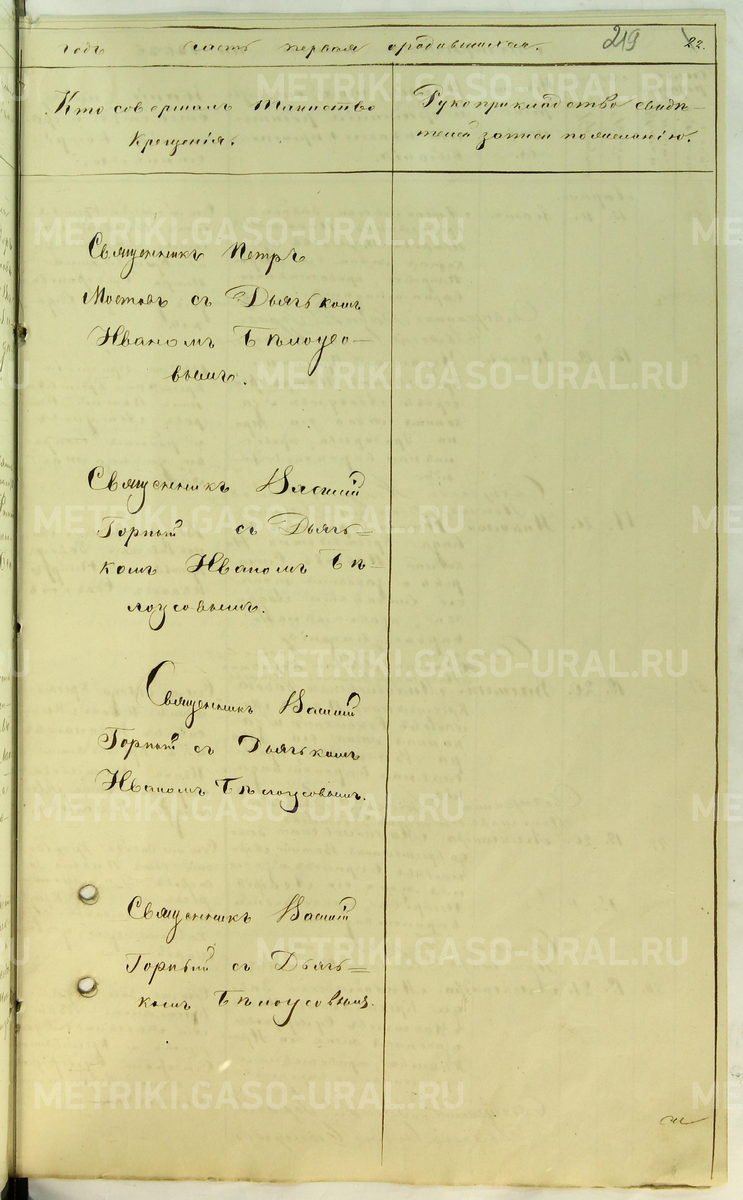 годъ часть первая о родившихся. 219 22.
Кто совершалъ таинство
крещенія.
Рукоприкладство свидѣ-
телей записи по желанію.
Священникъ Петръ
Мостовъ съ Дьячькомъ
Иваномъ Бѣлоусо-
вымъ.
Священникъ Василій
Горный съ Дьячь-
комъ Иваномъ Бѣ-
лоусовымъ.
Священникъ Василій
Горный съ Дьячькомъ
Иваномъ Бѣлоусовымъ.
Священникъ Василій
Горный съ Дьячь-
комъ Бѣлоусовымъ.
METRIKI.GASO-URAL.RU